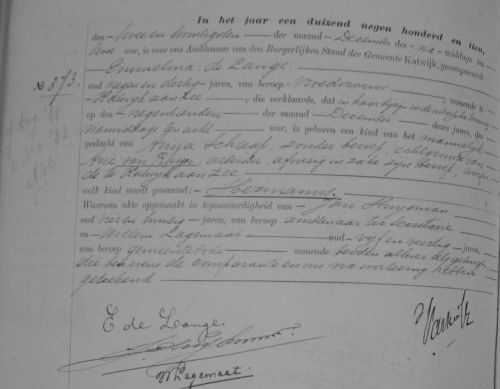 In het jaar een duizend negen honderd en tien,
den twee en twintigsten der maand December des na-middags ten
uur, is voor ons Ambtenaar van den Burgerlijken Stand der Gemeente Katwijk, gecompareerd
No 373. Emmetina de Lange
oud negen en dertig jaren, van beroep Vroedvrouw, wonende te
Katwijk aan Zee, die verklaarde, dat in haar bijzijn
op den negentienden der maand December dezes jaars, des
namiddags ten acht uur, is geboren een kind van het mannelijk
geslacht van Anna Schaap, zonder beroep, echtgenoote van
Arie van Rhijn, arbeider, afwezig in zake zijn beroep,
de te Katwijk aan Zee
welk kind wordt genaamd: Hermanus.
Waarvan akte opgemaakt in tegenwoordigheid van Jan Huijsman
oud twintig jaren, van beroep ambtenaar ter secretarie
en Willem Lagemaat oud vijf en veertig jaren,
van beroep gemeentebode wonende beiden alhier als getuigen
die benevens de comparante en ons na voorlezing hebben
geteekend.
E de Lange.
W Lagemaat